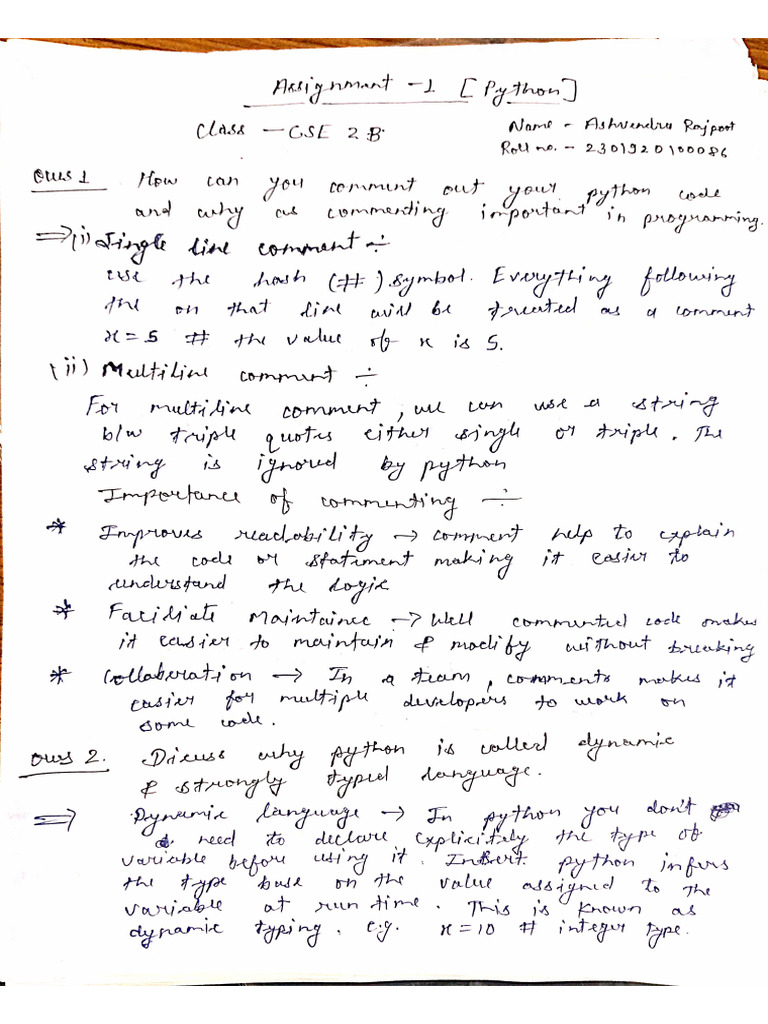 Assignment -1 [Python]
Class - CSE 2B
Name - Ashvendra Rajpoot
Roll no. - 2301920100086
Ques 1 How can you comment out your python code
and why as commenting important in programming.
⇒(i) Single line comment ÷
use the hash (#) symbol. Everything following
the on that line will be treated as a comment
x=5 # the value of x is 5.
(ii) Multiline comment ÷
For multiline comment, we can use a string
b/w triple quotes either single or triple. The
string is ignored by python
Importance of commenting ÷
* Improves readability → comment help to explain
the code or statiment making it easier to
understand the Logic
* Faciliate Maintainec → Well commented code makes
it easier to maintain & modify without breaking
* Collaberation → In a team, comments makes it
easier for multiple developers to work on
some code.
Ques 2. Dicuss why python is called dynamic
& strongly typed language.
⇒ Dynamic language → In python you don't
need to declare explicitely the type of
variable before using it. python infers
the type base on the value assigned to the
variable at run time. This is known as
dynamic typing. e.g. x=10 # integer type.